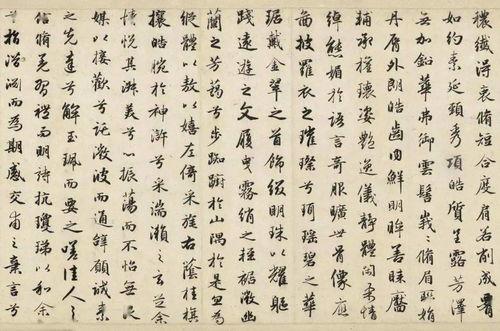 穠纖得衷脩短合度肩若削成腰
如約素延頸秀項皓質呈露芳澤
無加鉛華弗御雲髻峩峩脩眉聯娟
丹脣外朗皓齒内鮮明眸善睞靨
輔承權瓌姿艷逸儀靜體閑柔情
綽態媚於語言奇服曠世骨像應
圖披羅衣之璀璨兮珥瑤碧之華
琚戴金翠之首飾綴明珠以耀軀
踐遠遊之文履曳霧綃之輕裾微幽
蘭之芳藹兮步踟躕於山隅於是忽焉
縱體以遨以嬉左倚采旄右蔭桂旗
攘皓腕於神滸兮采湍瀨之玄芝余
情悅其淑美兮心振蕩而不怡無良
媒以接歡兮託微波而通辭願誠素
之先達兮解玉珮而要之嗟佳人之
信脩羌習禮而明詩抗瓊珶以和余
兮指潛淵而為期感交甫之棄言兮